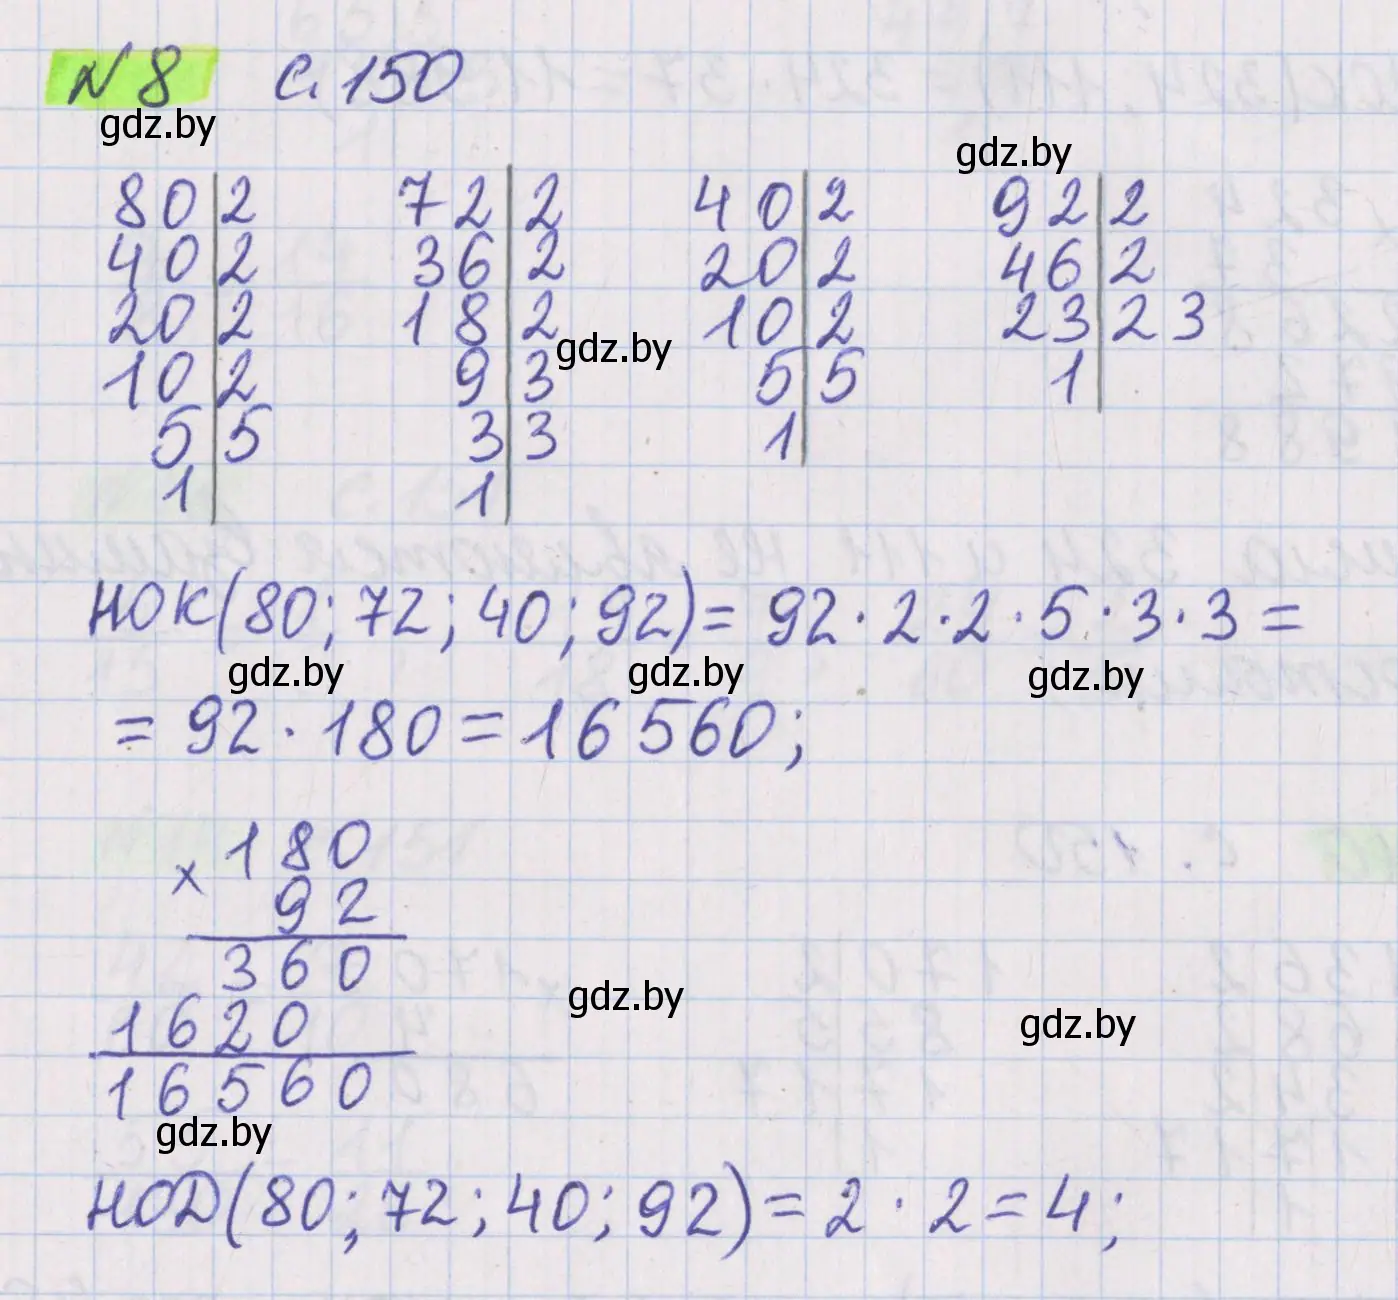 №8 с. 150
gdz.by
gdz.by
80|2 72|2 40|2 92|2
40|2 36|2 20|2 46|2
20|2 18|2 10|2 23|23
gdz.by
10|2 9|3 5|5 1|
5|5 3|3 1|
1| 1|
НОК(80; 72; 40; 92) = 92 · 2 · 2 · 5 · 3 · 3 =
gdz.by gdz.by gdz.by
= 92 · 180 = 16 560;
× 180
92
360
1620
16560
gdz.by
gdz.by
gdz.by
НОД(80; 72; 40; 92) = 2 · 2 = 4;